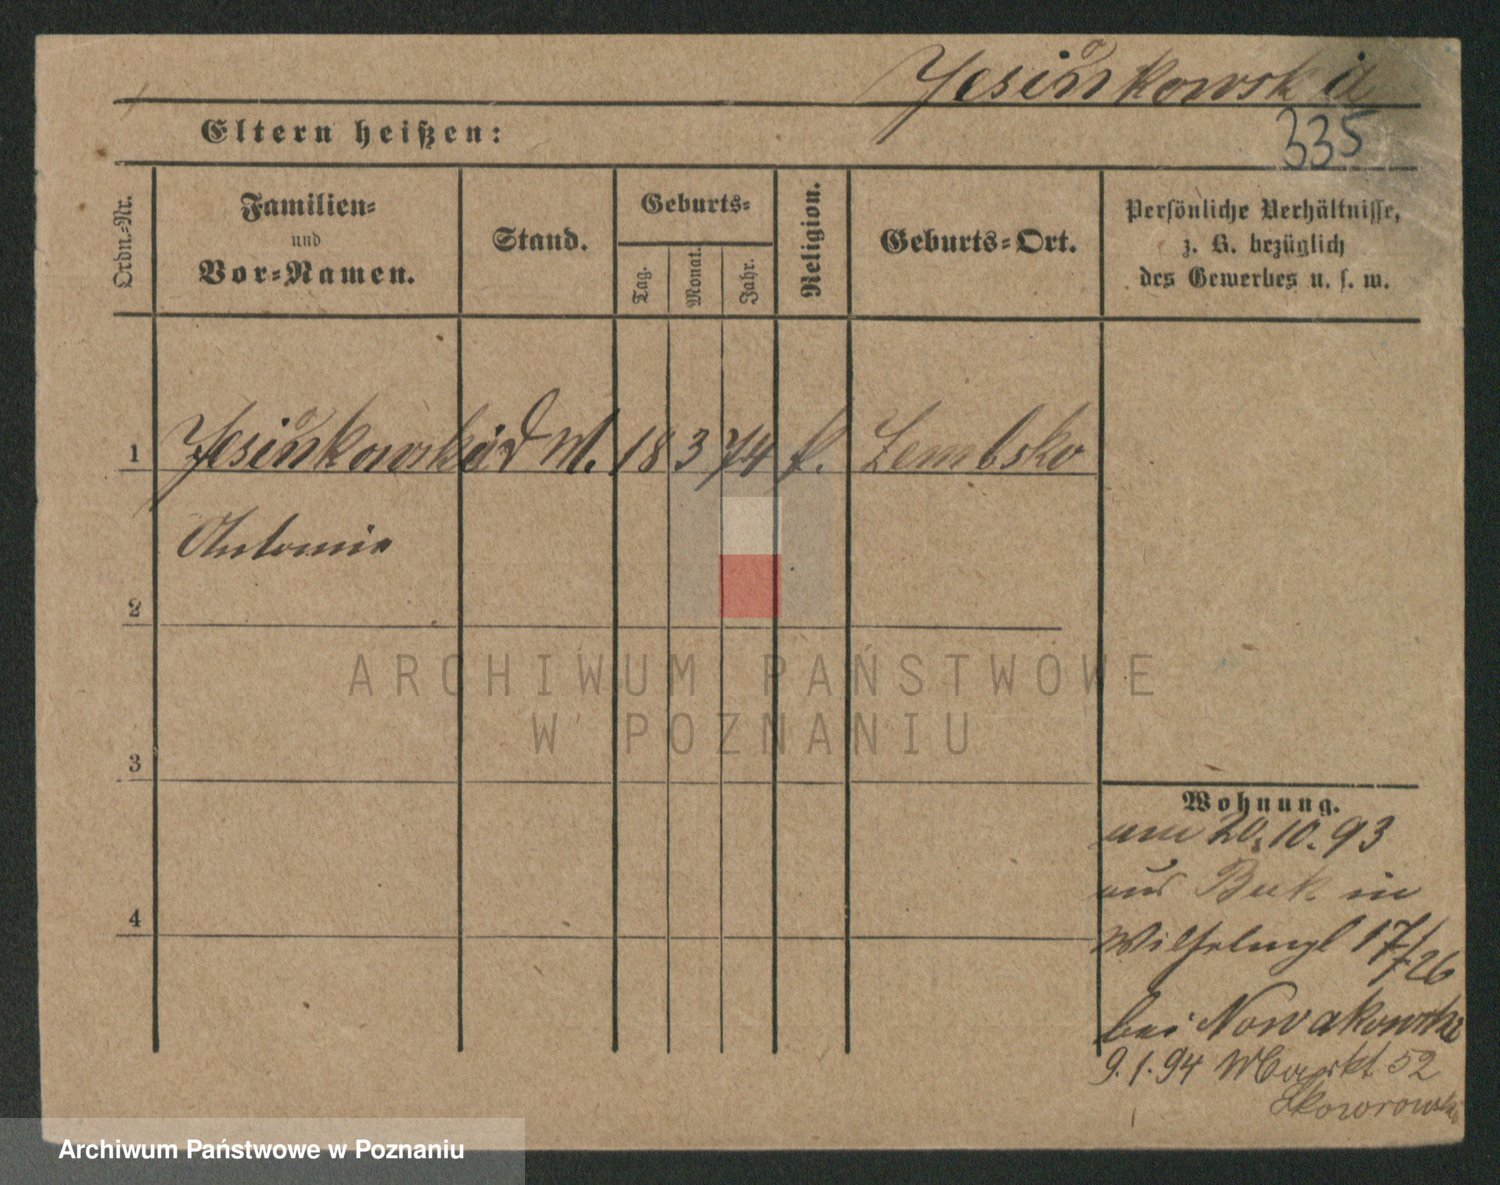 Jesiönkowska
335
Eltern heißen:
Ordn.-Nr.
Familien-
und
Vor-Namen.
Stand.
Geburts-
Tag.
Monat.
Jahr.
Religion.
Geburts-Ort.
Persönliche Verhältnisse,
z. B. bezüglich
des Gewerbes u. s. w.
1 Jesiönkowska d M. 18 3 74 k. Zembsko
Antonie
2
3
4
Wohnung.
am 20.10.93
aus Buk in
Wilhelmpl 17/26
bei Nowakowski
9.1.94 Markt 52
ARCHIWUM PAŃSTWOWE
W POZNANIU
Archiwum Państwowe w Poznaniu